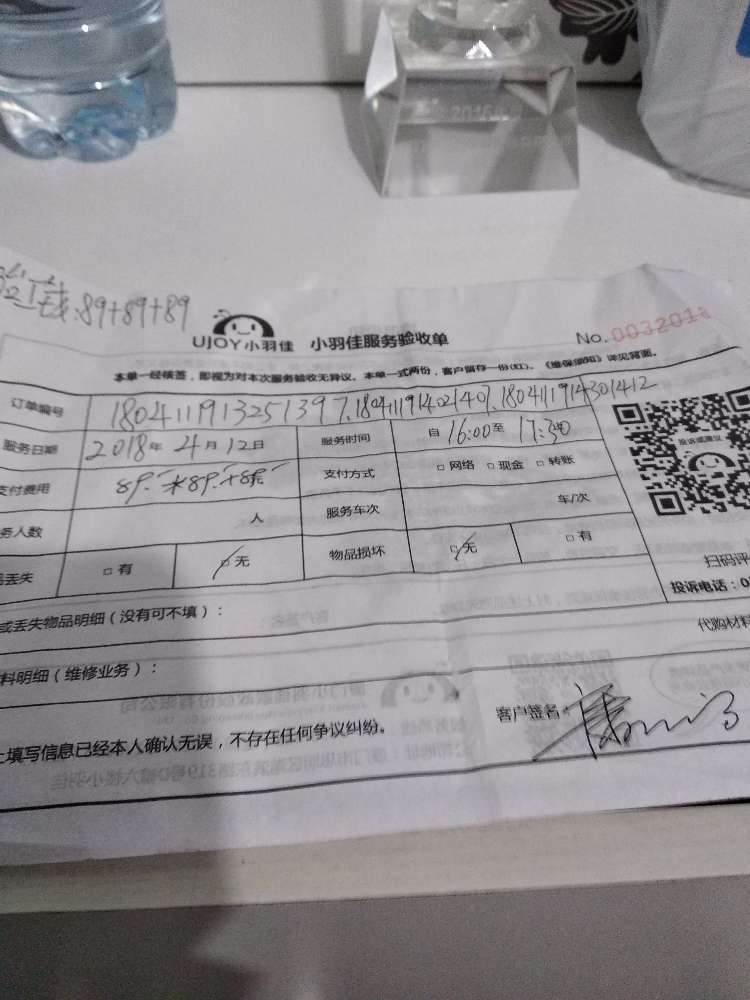 89+89+89
UJOY小羽佳 小羽佳服务验收单 No.0032013
本单一经核签，即视为对本次服务验收无异议。本单一式两份，客户留存一份(红)。《维保须知》详见背面。
订单编号 180411191325139 7.180411191402140 1804111914301412
服务日期 2018年 4月12日 服务时间 自 16:00至 17:30
支付费用 支付方式 □ 网络 □ 现金 □ 转账
务人数 人 服务车次 车/次
丢失 □ 有 □ 无 物品损坏 □ 无 □ 有
投诉或建议
扫码评
投诉电话：0
或丢失物品明细（没有可不填）：
代购材料
料明细（维修业务）：
上填写信息已经本人确认无误，不存在任何争议纠纷。
客户签名：